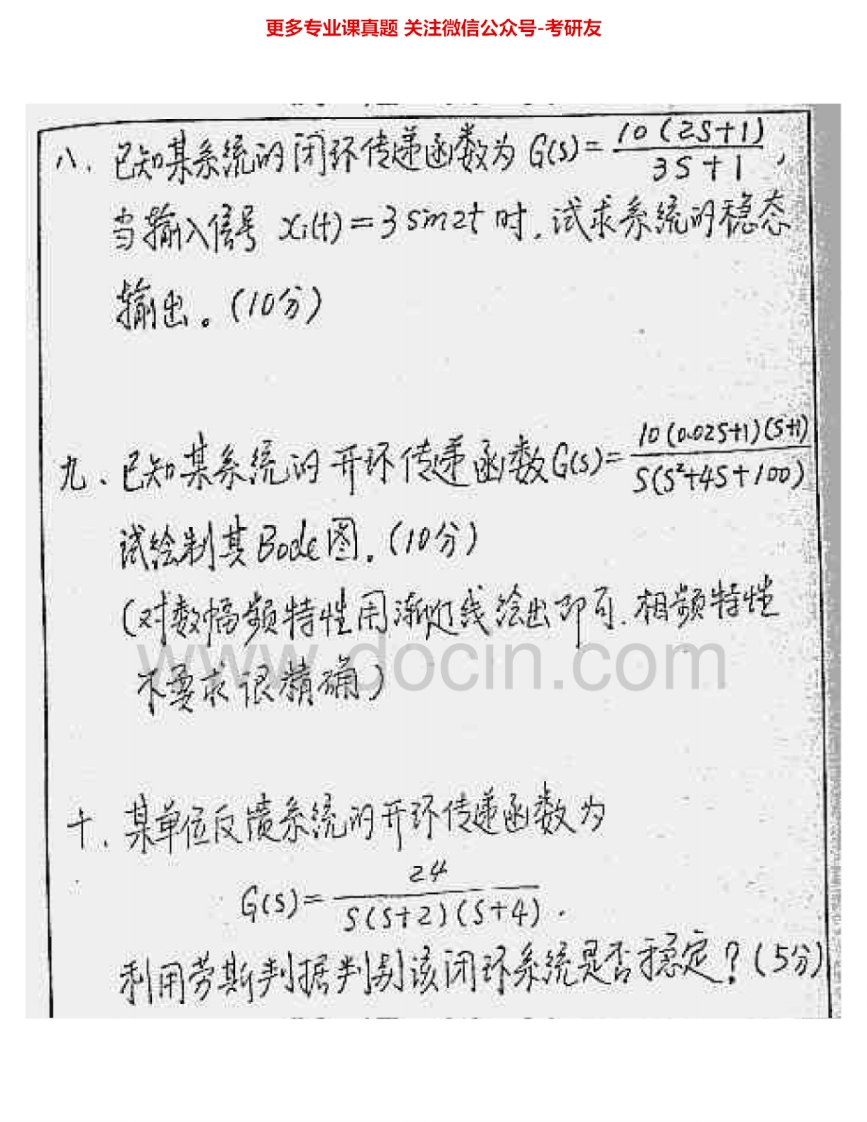 更多专业课真题 关注微信公众号-考研友
八、已知某系统的闭环传递函数为 G(s)= 10(2S+1) / 3S+1 ,
当输入信号 xi(t)=3sin2t 时,试求系统的稳态
输出。(10分)
九、已知某系统的开环传递函数G(s)= 10(0.02S+1)(S+1) / S(S²+4S+100)
试绘制其Bode图。(10分)
(对数幅频特性用渐近线绘出即可.相频特性
不要求很精确)
www.docin.com
十、某单位反馈系统的开环传递函数为
G(s)= 24 / S(S+2)(S+4) .
利用劳斯判据判别该闭环系统是否稳定?(5分)